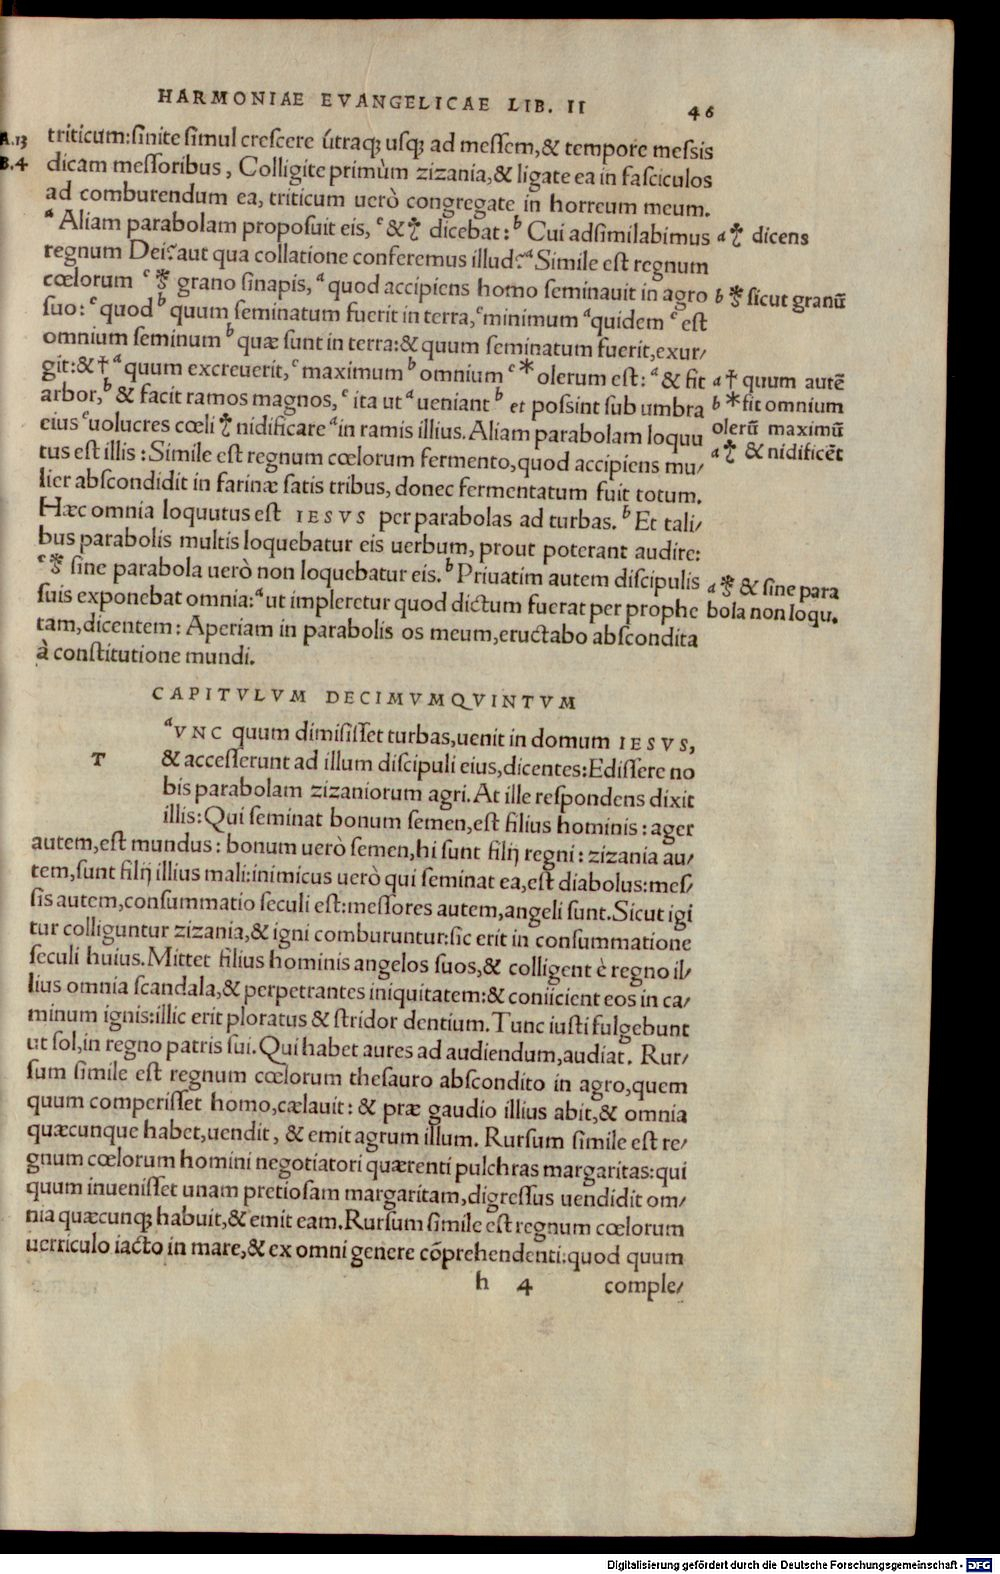 HARMONIAE EVANGELICAE LIB. II 46
A.13 triticum:ſinite ſimul creſcere útraq; uſq; ad meſſem,& tempore meſsis
B.4 dicam meſſoribus, Colligite primùm zizania,& ligate ea in faſciculos
ad comburendum ea, triticum uerò congregate in horreum meum.
ᵃ Aliam parabolam propoſuit eis, ᶜ & dicebat: ᵇ Cui adſimilabimus a dicens
regnum Dei? aut qua collatione conferemus illud? ᵃ Simile eſt regnum
cœlorum ᶜ grano ſinapis, ᵃ quod accipiens homo ſeminauit in agro b ſicut granũ
ſuo: ᶜ quod ᵇ quum ſeminatum fuerit in terra, ᶜ minimum ᵃ quidem ᶜ eſt
omnium ſeminum ᵇ quæ ſunt in terra:& quum ſeminatum fuerit,exur/
git:& † ᵃ quum excreuerit, ᶜ maximum ᵇ omnium ᶜ * olerum eſt: ᵃ & fit a † quum autẽ
arbor, ᵇ & facit ramos magnos, ᶜ ita ut ᵃ ueniant ᵇ et poſsint ſub umbra b * fit omnium
eius ᶜ uolucres cœli nidificare ᵃ in ramis illius. Aliam parabolam loquu olerũ maximũ
tus eſt illis: Simile eſt regnum cœlorum fermento,quod accipiens mu/ a & nidificẽt
lier abſcondidit in farinæ ſatis tribus, donec fermentatum fuit totum.
Hæc omnia loquutus eſt IESVS per parabolas ad turbas. ᵇ Et tali/
bus parabolis multis loquebatur eis uerbum, prout poterant audire:
ᶜ ſine parabola uerò non loquebatur eis. ᵇ Priuatim autem diſcipulis a & ſine para
ſuis exponebat omnia: ᵃ ut impleretur quod dictum fuerat per prophe bola non loqu.
tam,dicentem: Aperiam in parabolis os meum,eructabo abſcondita
à conſtitutione mundi.
CAPITVLVM DECIMVMQVINTVM
ᵃVNC quum dimiſiſſet turbas,uenit in domum IESVS,
T & acceſſerunt ad illum diſcipuli eius,dicentes:Ediſſere no
bis parabolam zizaniorum agri. At ille reſpondens dixit
illis: Qui ſeminat bonum ſemen,eſt filius hominis: ager
autem,eſt mundus: bonum uerò ſemen,hi ſunt filij regni: zizania au/
tem,ſunt filij illius mali:inimicus uerò qui ſeminat ea,eſt diabolus:meſ/
ſis autem,conſummatio ſeculi eſt:meſſores autem,angeli ſunt. Sicut igi
tur colliguntur zizania,& igni comburuntur:ſic erit in conſummatione
ſeculi huius. Mittet filius hominis angelos ſuos,& colligent è regno il/
lius omnia ſcandala,& perpetrantes iniquitatem:& coniicient eos in ca/
minum ignis:illic erit ploratus & ſtridor dentium. Tunc iuſti fulgebunt
ut ſol,in regno patris ſui. Qui habet aures ad audiendum,audiat. Rur/
ſum ſimile eſt regnum cœlorum theſauro abſcondito in agro,quem
quum comperiſſet homo,cælauit: & præ gaudio illius abit,& omnia
quæcunque habet,uendit, & emit agrum illum. Rurſum ſimile eſt re/
gnum cœlorum homini negotiatori quærenti pulchras margaritas:qui
quum inueniſſet unam pretioſam margaritam,digreſſus uendidit om/
nia quæcunq; habuit,& emit eam. Rurſum ſimile eſt regnum cœlorum
uerriculo iacto in mare,& ex omni genere cõprehendenti:quod quum
h 4 comple/
Digitalisierung gefördert durch die Deutsche Forschungsgemeinschaft - DFG